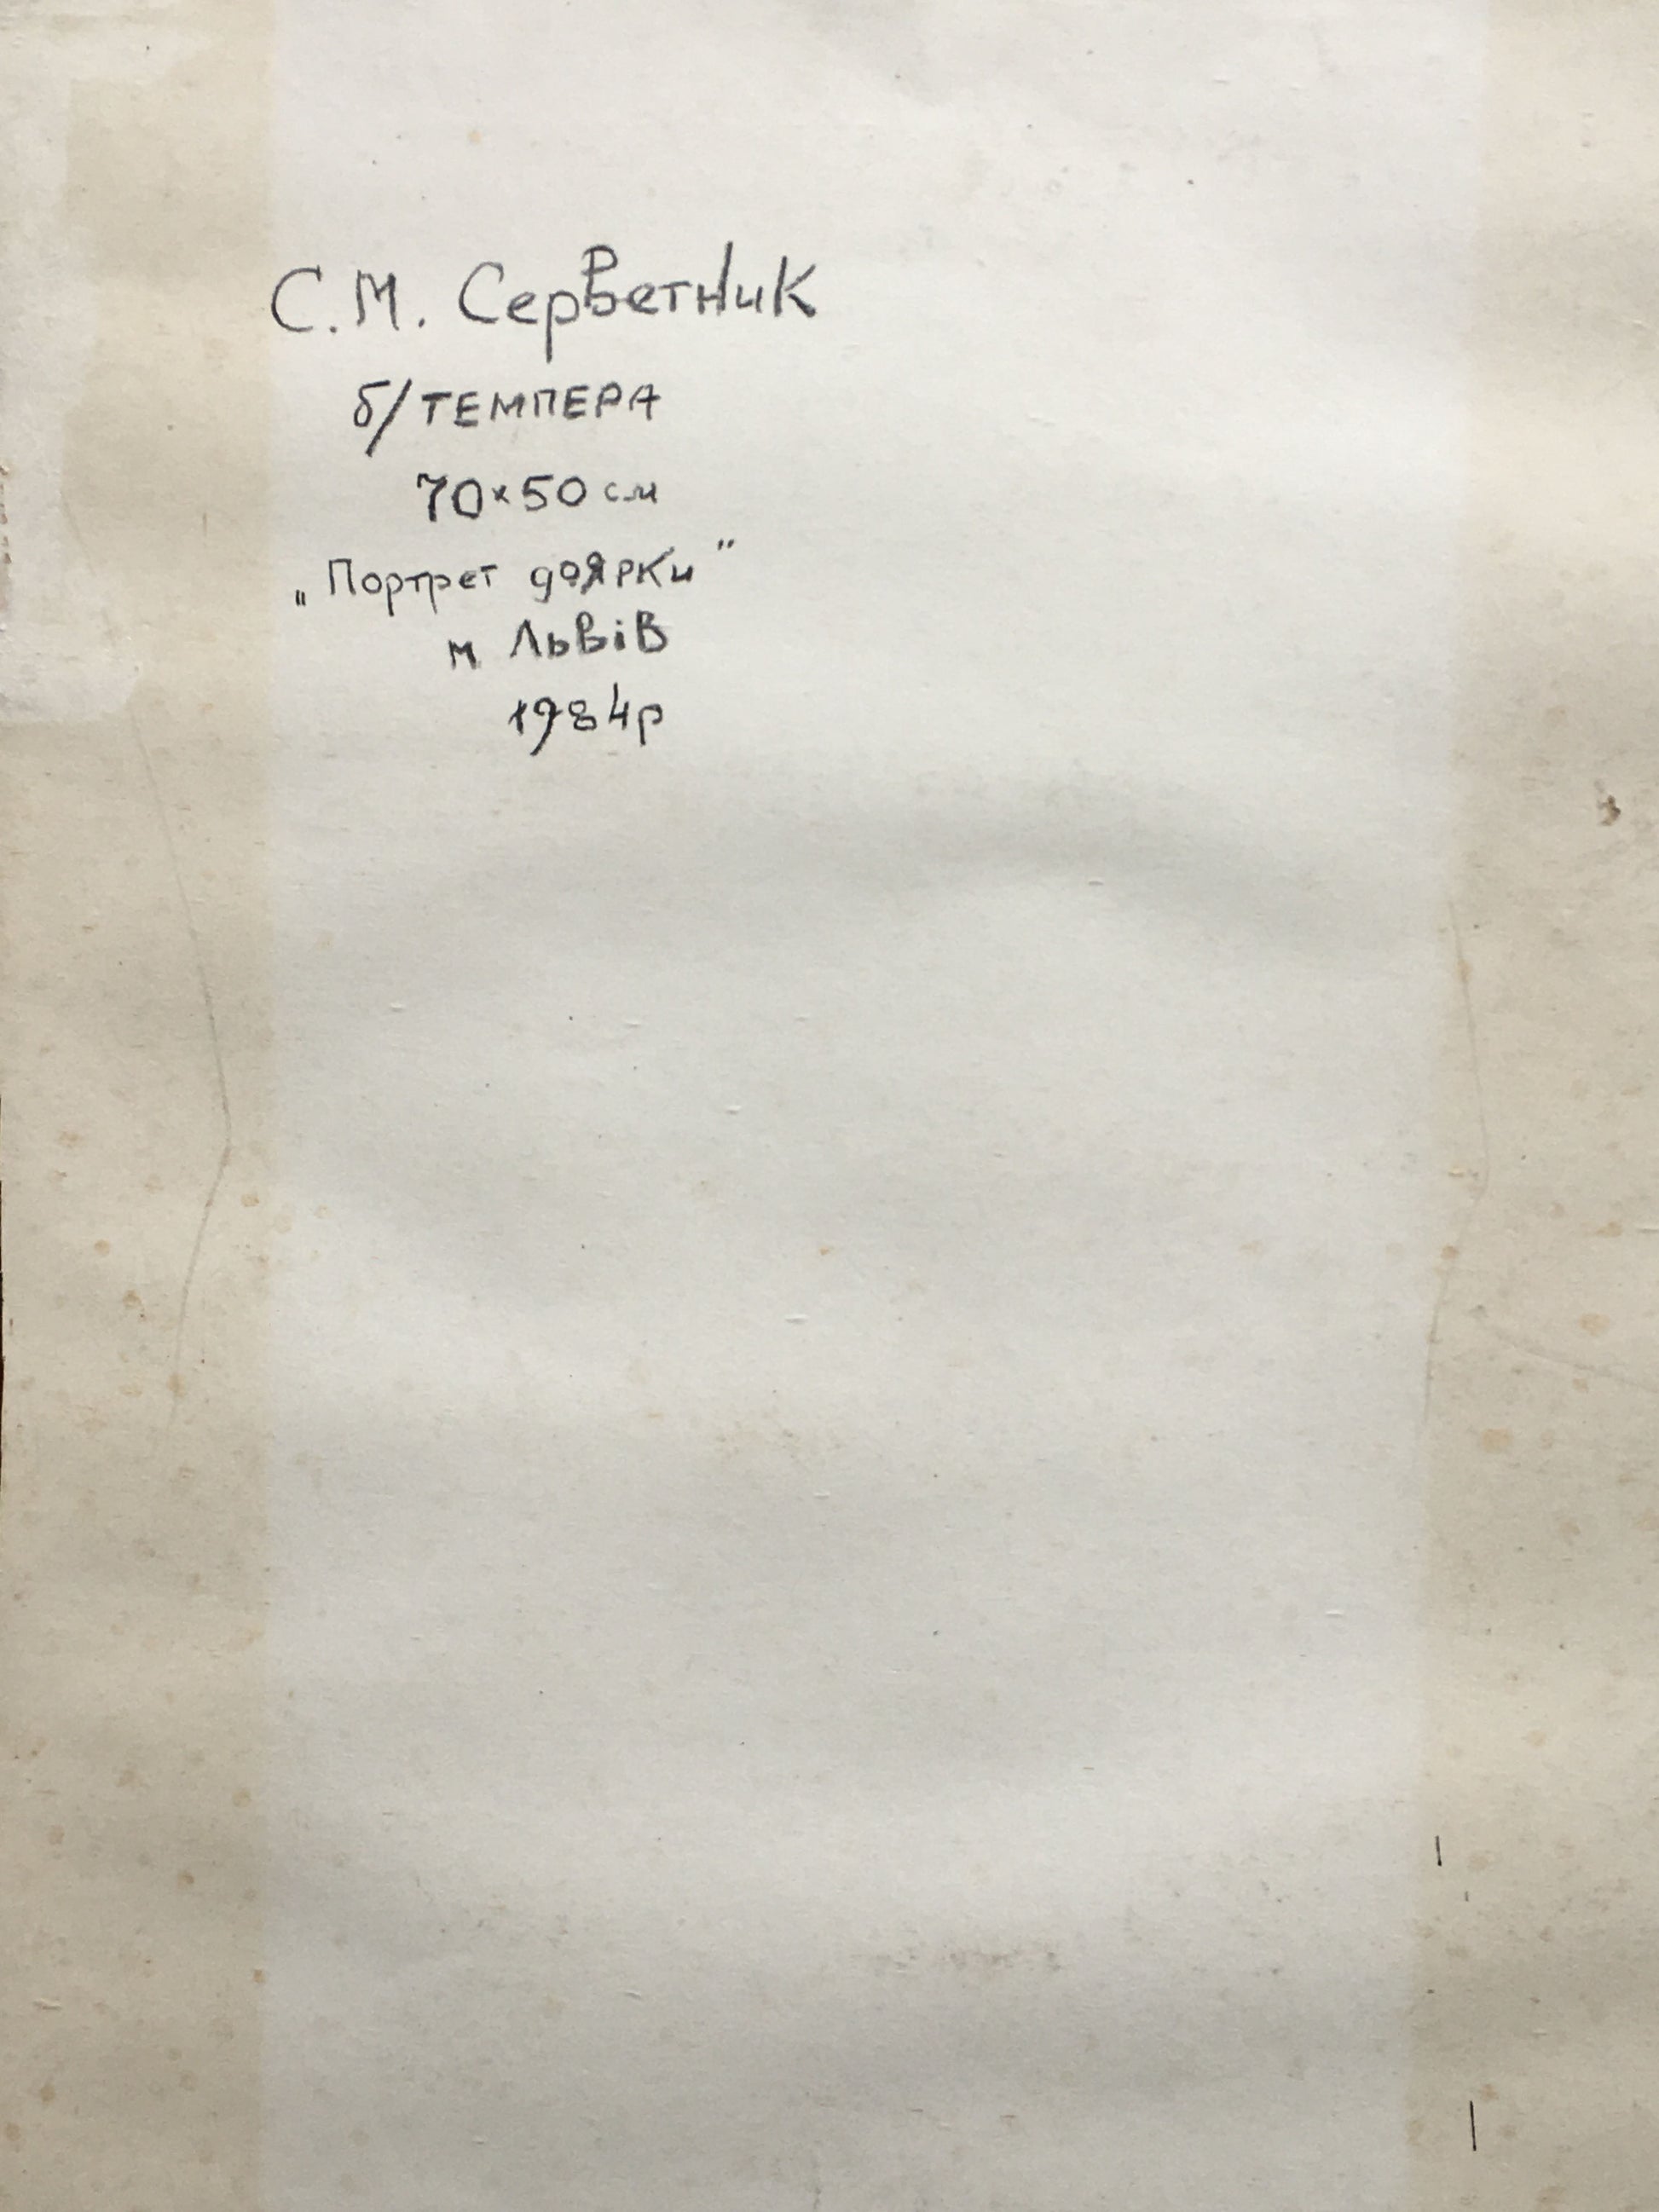 С.М. Серветник
б/ТЕМПЕРА
70×50 см
„Портрет доярки"
м Львів
1984р